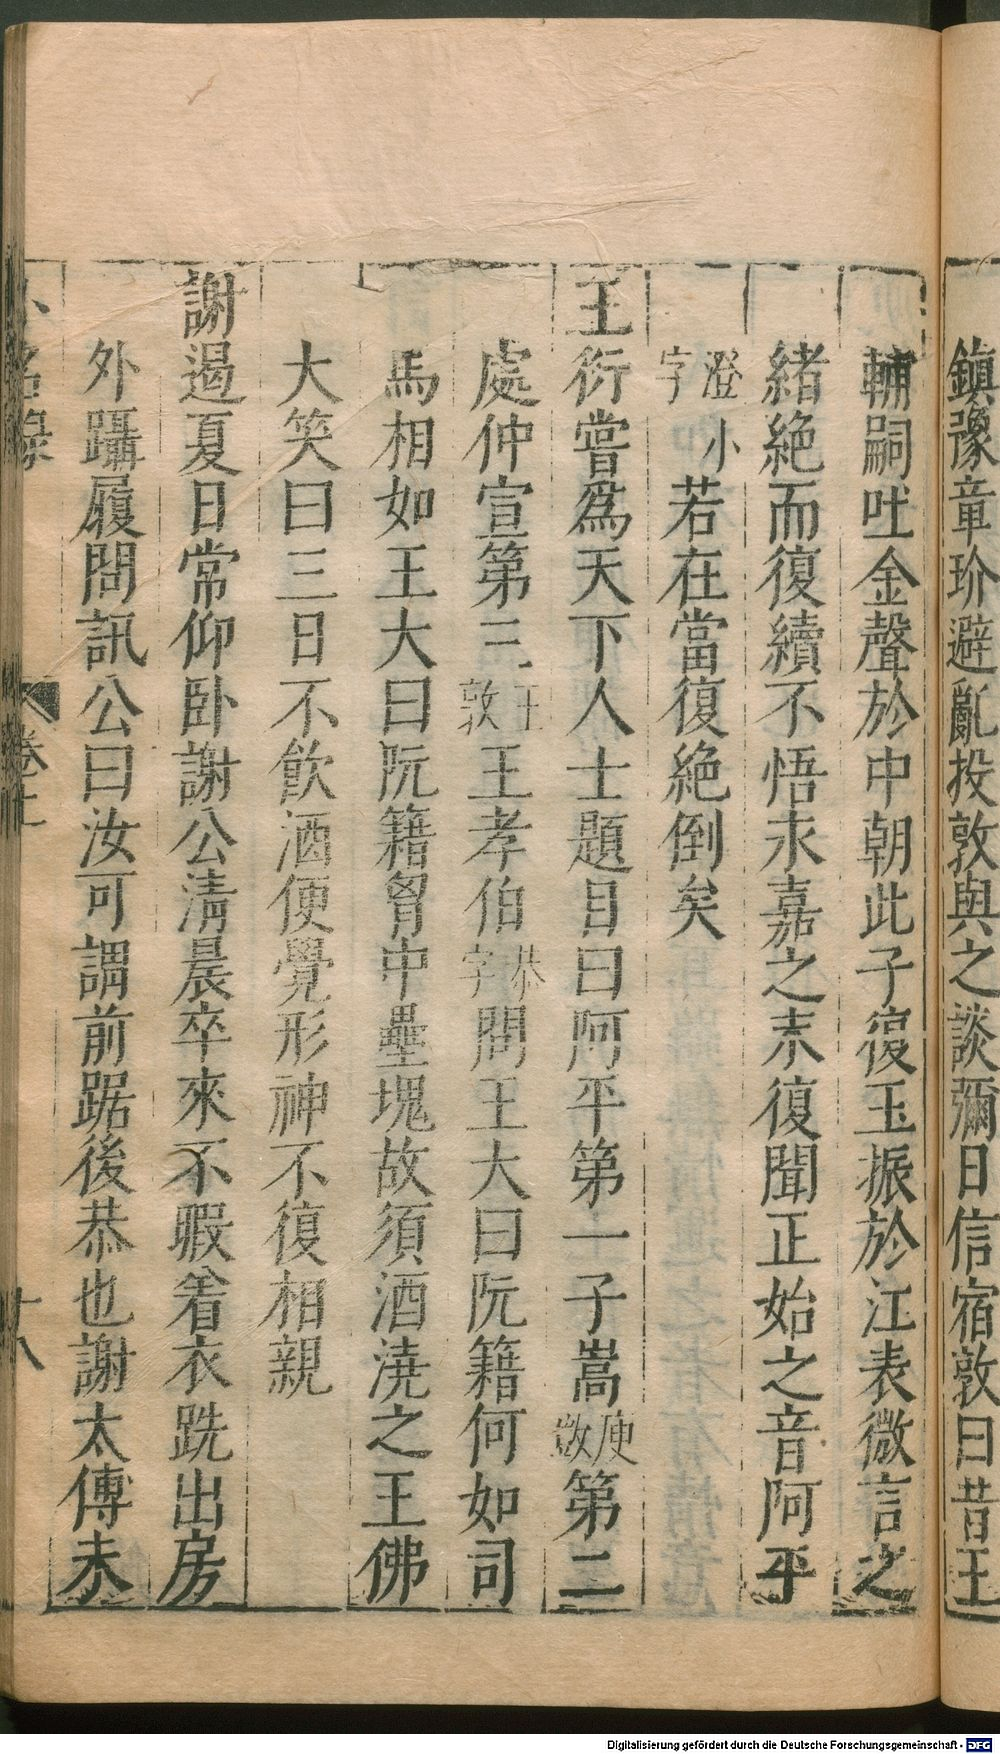 鎮豫章玠避亂投敦與之談彌日信宿敦曰昔王
輔嗣吐金聲於中朝此子復玉振於江表微言之
緒絶而復續不悟永嘉之末復聞正始之音阿平
澄小字若在當復絶倒矣
王衍嘗爲天下人士題目曰阿平第一子嵩庾敳第二
處仲宣第三王敦王孝伯恭字問王大曰阮籍何如司
馬相如王大曰阮籍胷中壘塊故須酒澆之王佛
大笑曰三日不飲酒便覺形神不復相親
謝遏夏日常仰卧謝公清晨卒來不暇着衣跣出房
外躡履問訊公曰汝可謂前踞後恭也謝太傅未
小名錄 卷上 十八
Digitalisierung gefördert durch die Deutsche Forschungsgemeinschaft - DFG